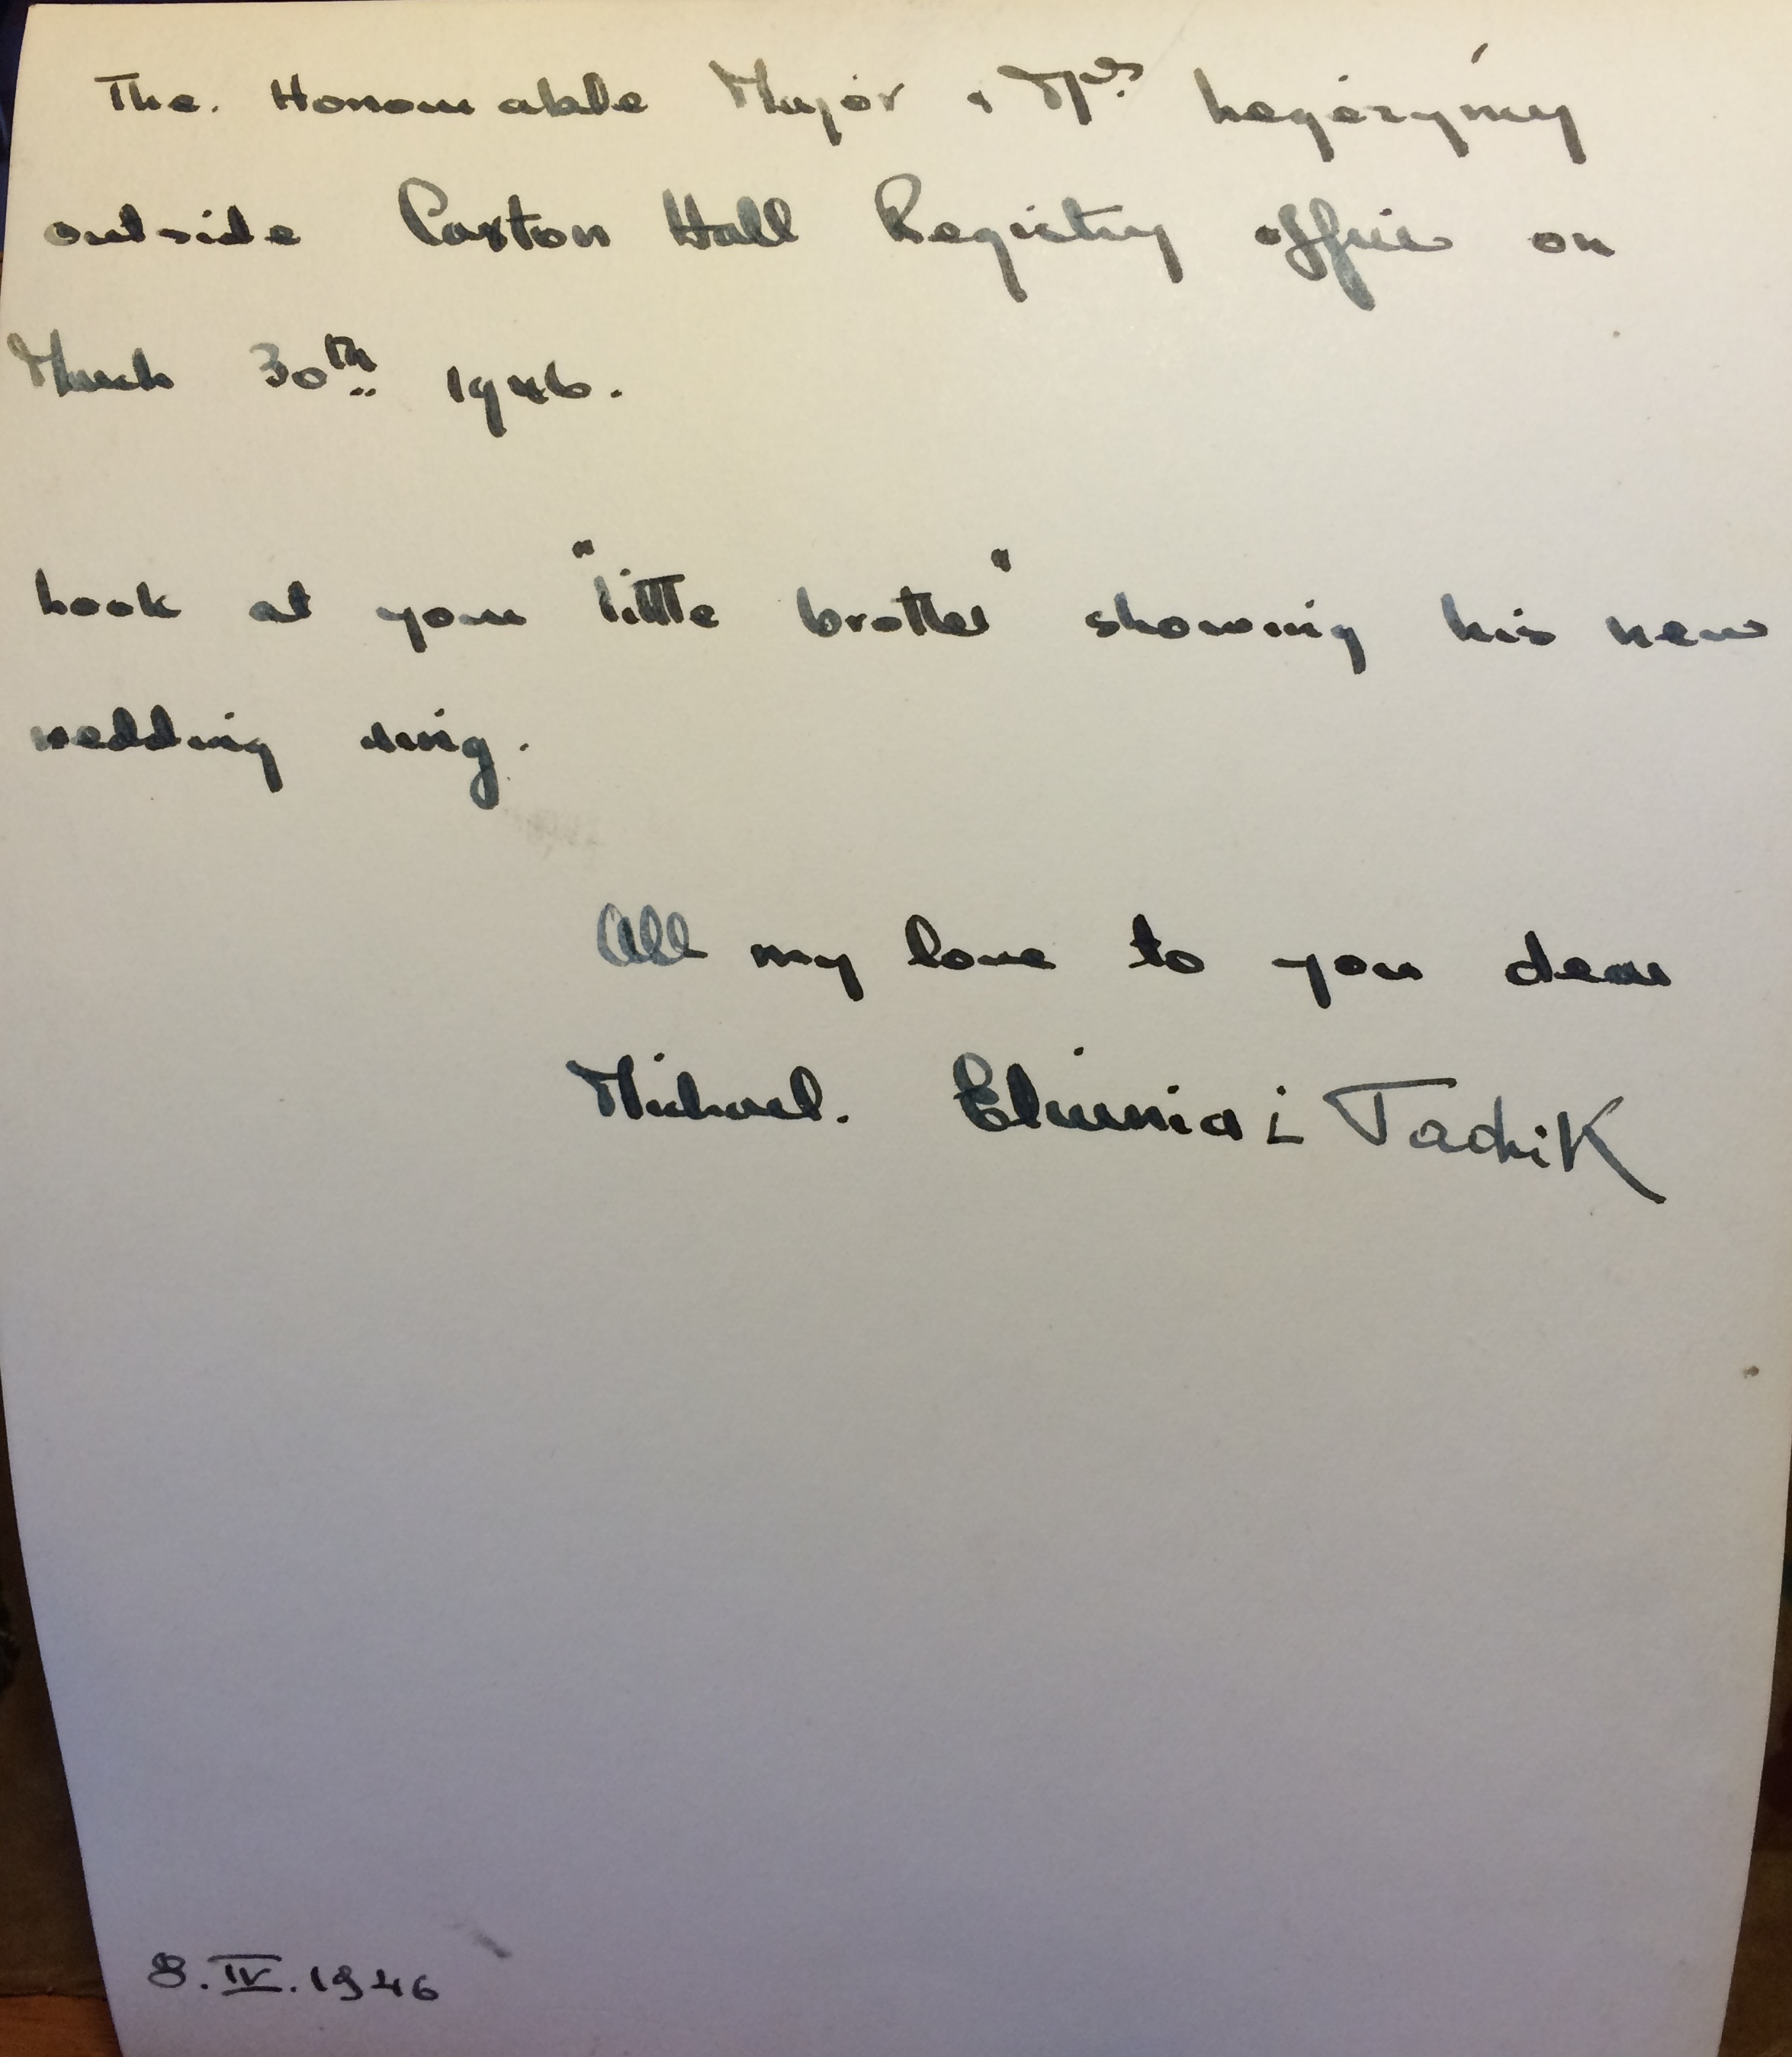 The. Honourable Major & Mrs
outside Caxton Hall Registry office on
March 30th 1946.
Look at your "little brother" showing his new
wedding ring.
All my love to you dear
Michael. Elunia i Tadzik
8.IV.1946